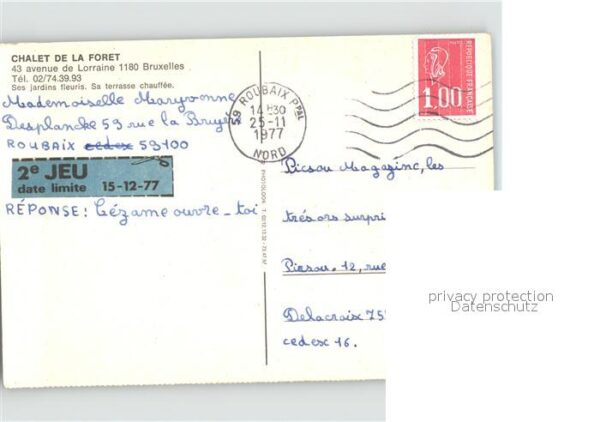 CHALET DE LA FORET
43 avenue de Lorraine 1180 Bruxelles
Tél. 02/74.39.93
Ses jardins fleuris. Sa terrasse chauffée.
Mademoiselle Maryvonne
Desplancke 59 rue la Bruyè
ROUBAIX cedex 59100
2e JEU
date limite 15-12-77
RÉPONSE: Cézame ouvre-toi
59 ROUBAIX PPAL
14H30
25-11
1977
NORD
REPUBLIQUE FRANÇAISE
1,00
Picsou Magazine, les
trésors surpri
Picsou. 12, rue
Delacroix 75
cedex 16.
privacy protection
Datenschutz